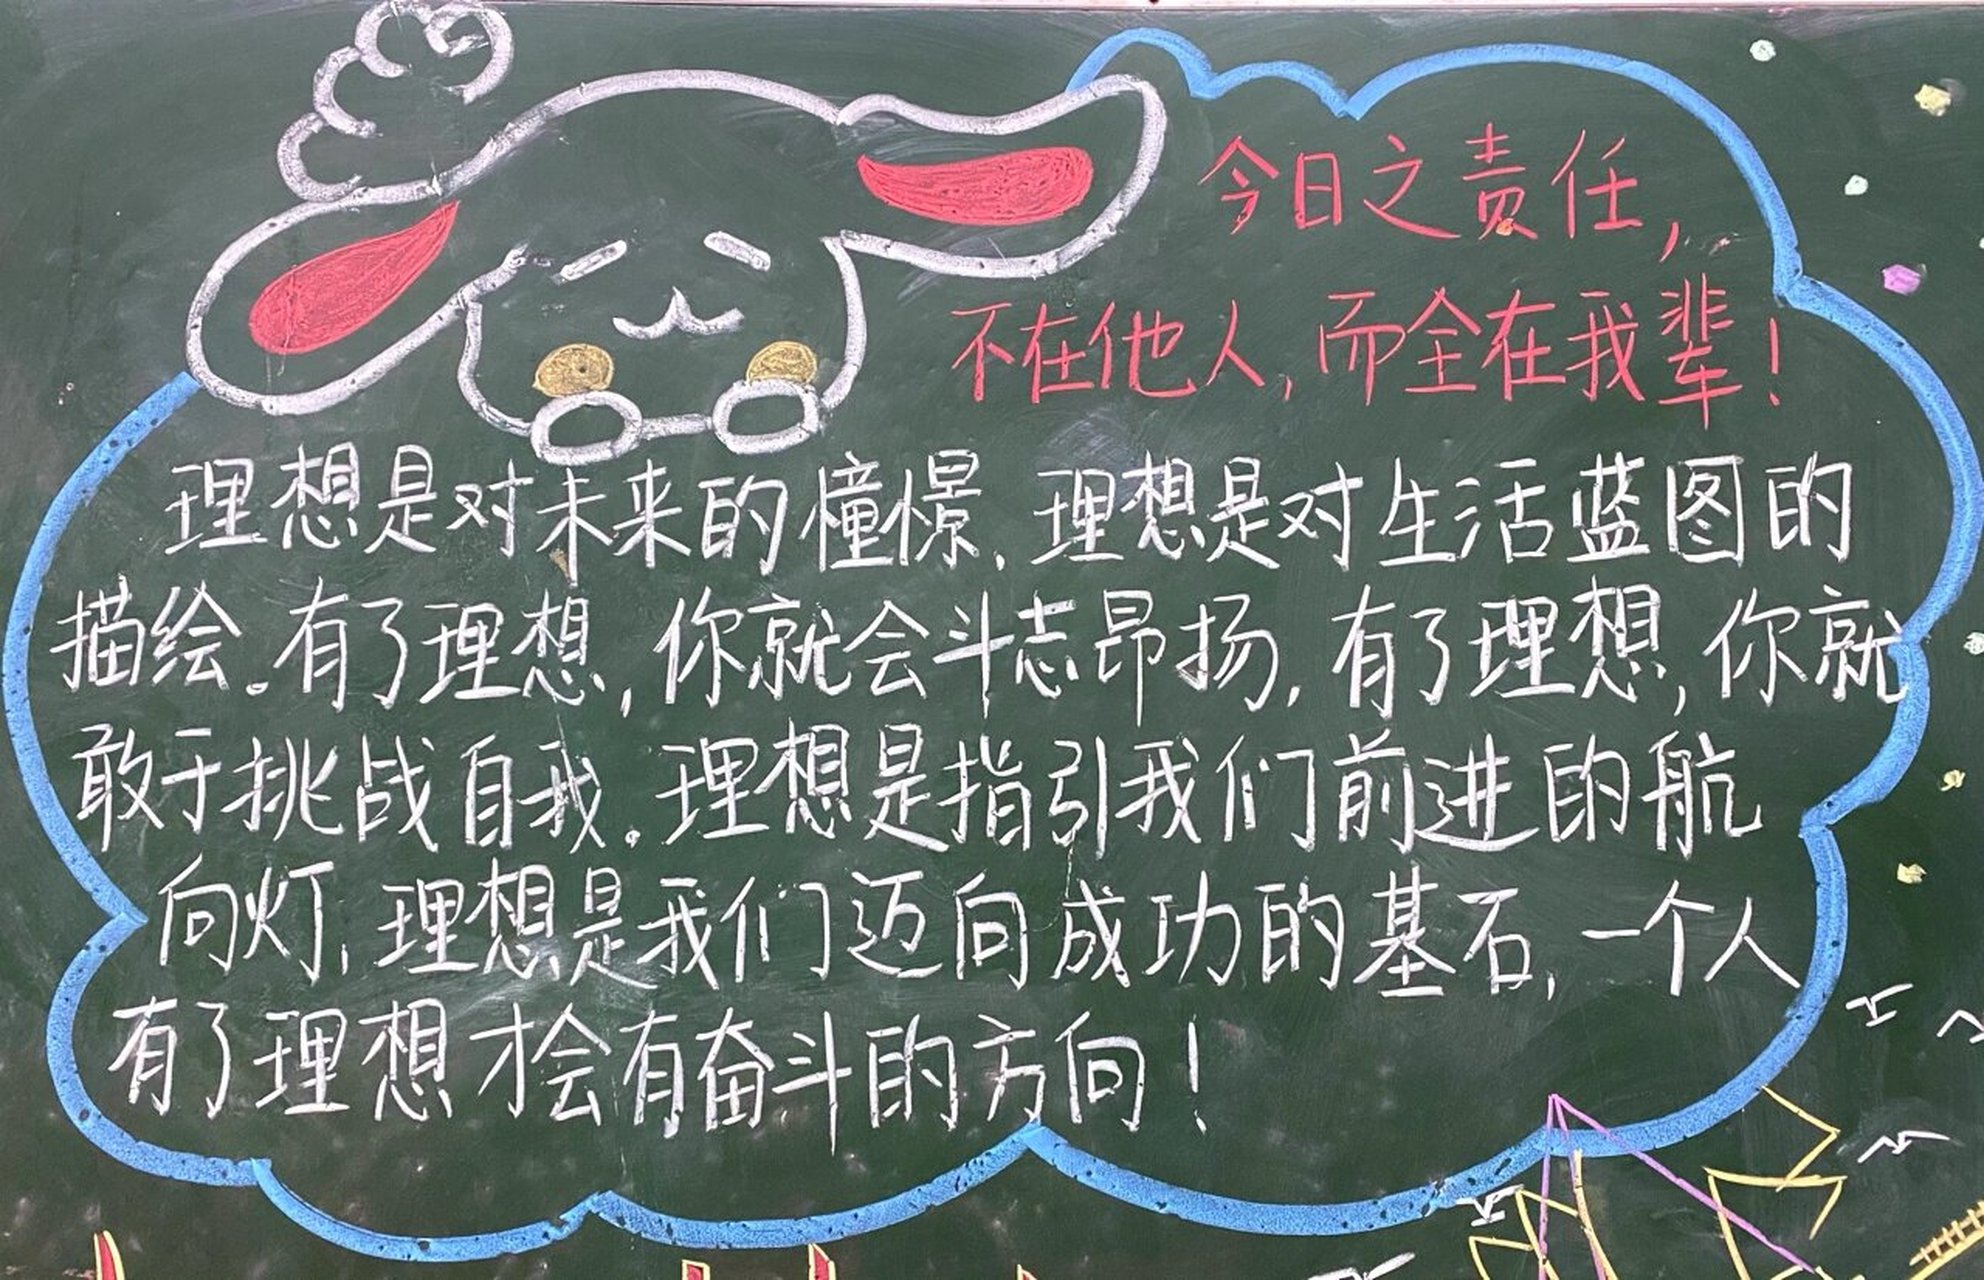 今日之责任，
不在他人，而全在我辈！
理想是对未来的憧憬，理想是对生活蓝图的
描绘。有了理想，你就会斗志昂扬，有了理想，你就
敢于挑战自我。理想是指引我们前进的航
向灯，理想是我们迈向成功的基石，一个人
有了理想才会有奋斗的方向！